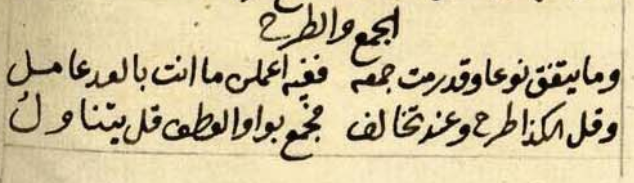 الجمع والطرح
وما يتفق نوعا وقد رمت جمعه ففيه اعملن ما انت بالعد عامل
وقل الكذا طرح وعند تخالف فجمع بواو العطف قل يتناول